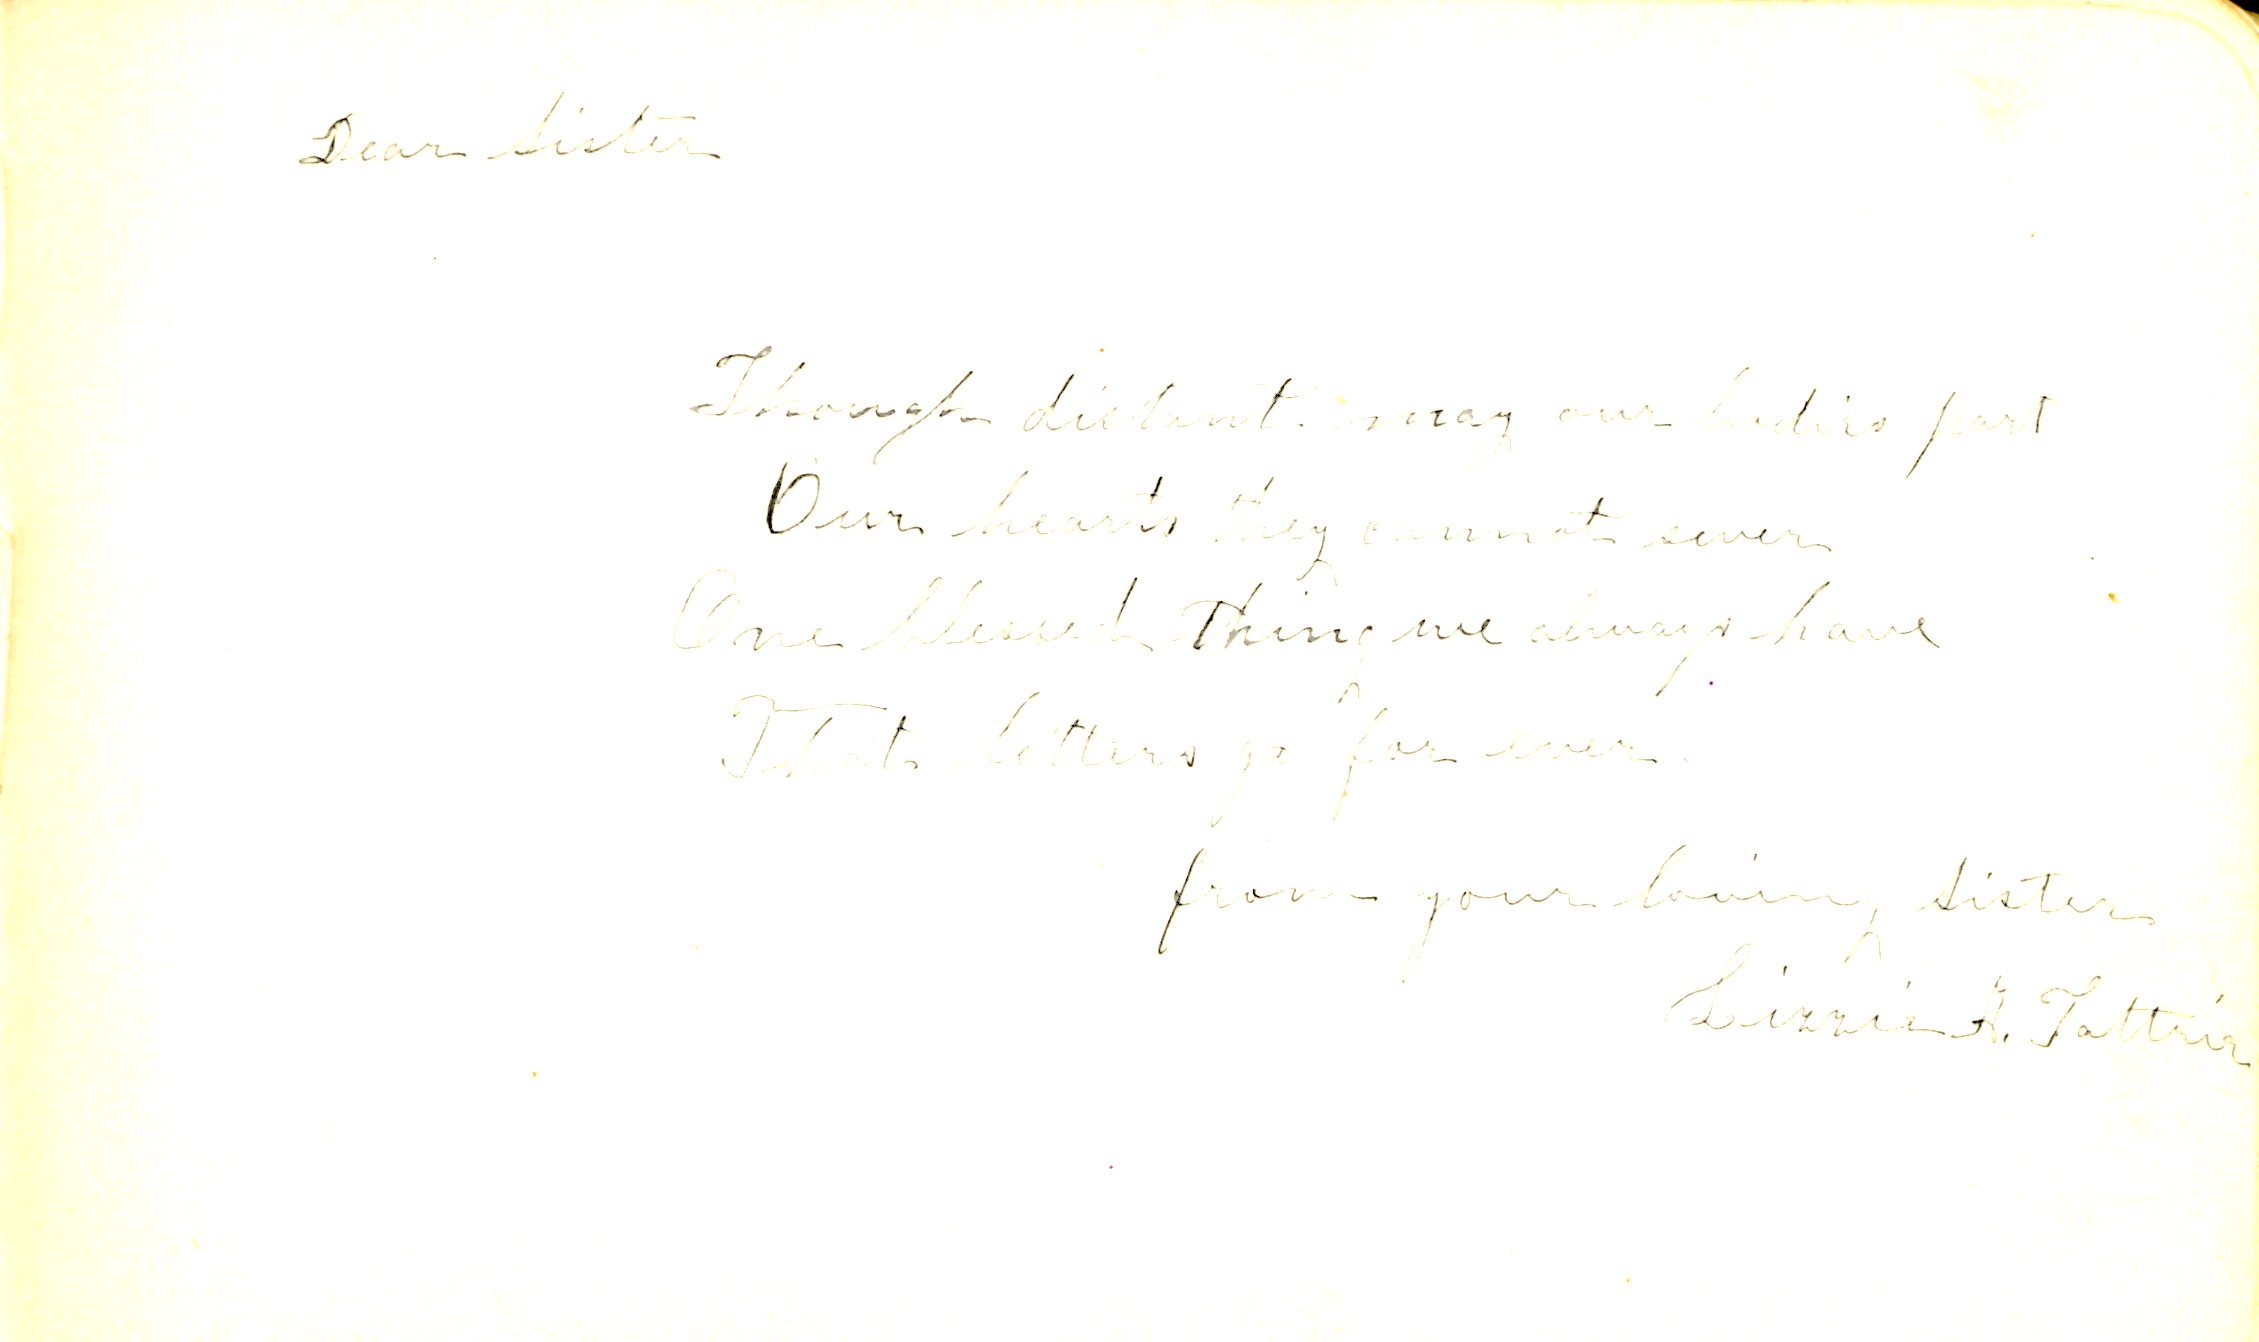 Dear Sister
Though distant may our bodies part
Our hearts they cannot sever
One blessed thing we always have
That letters go for ever.
from your loving sister
Lizzie A. Tattrie